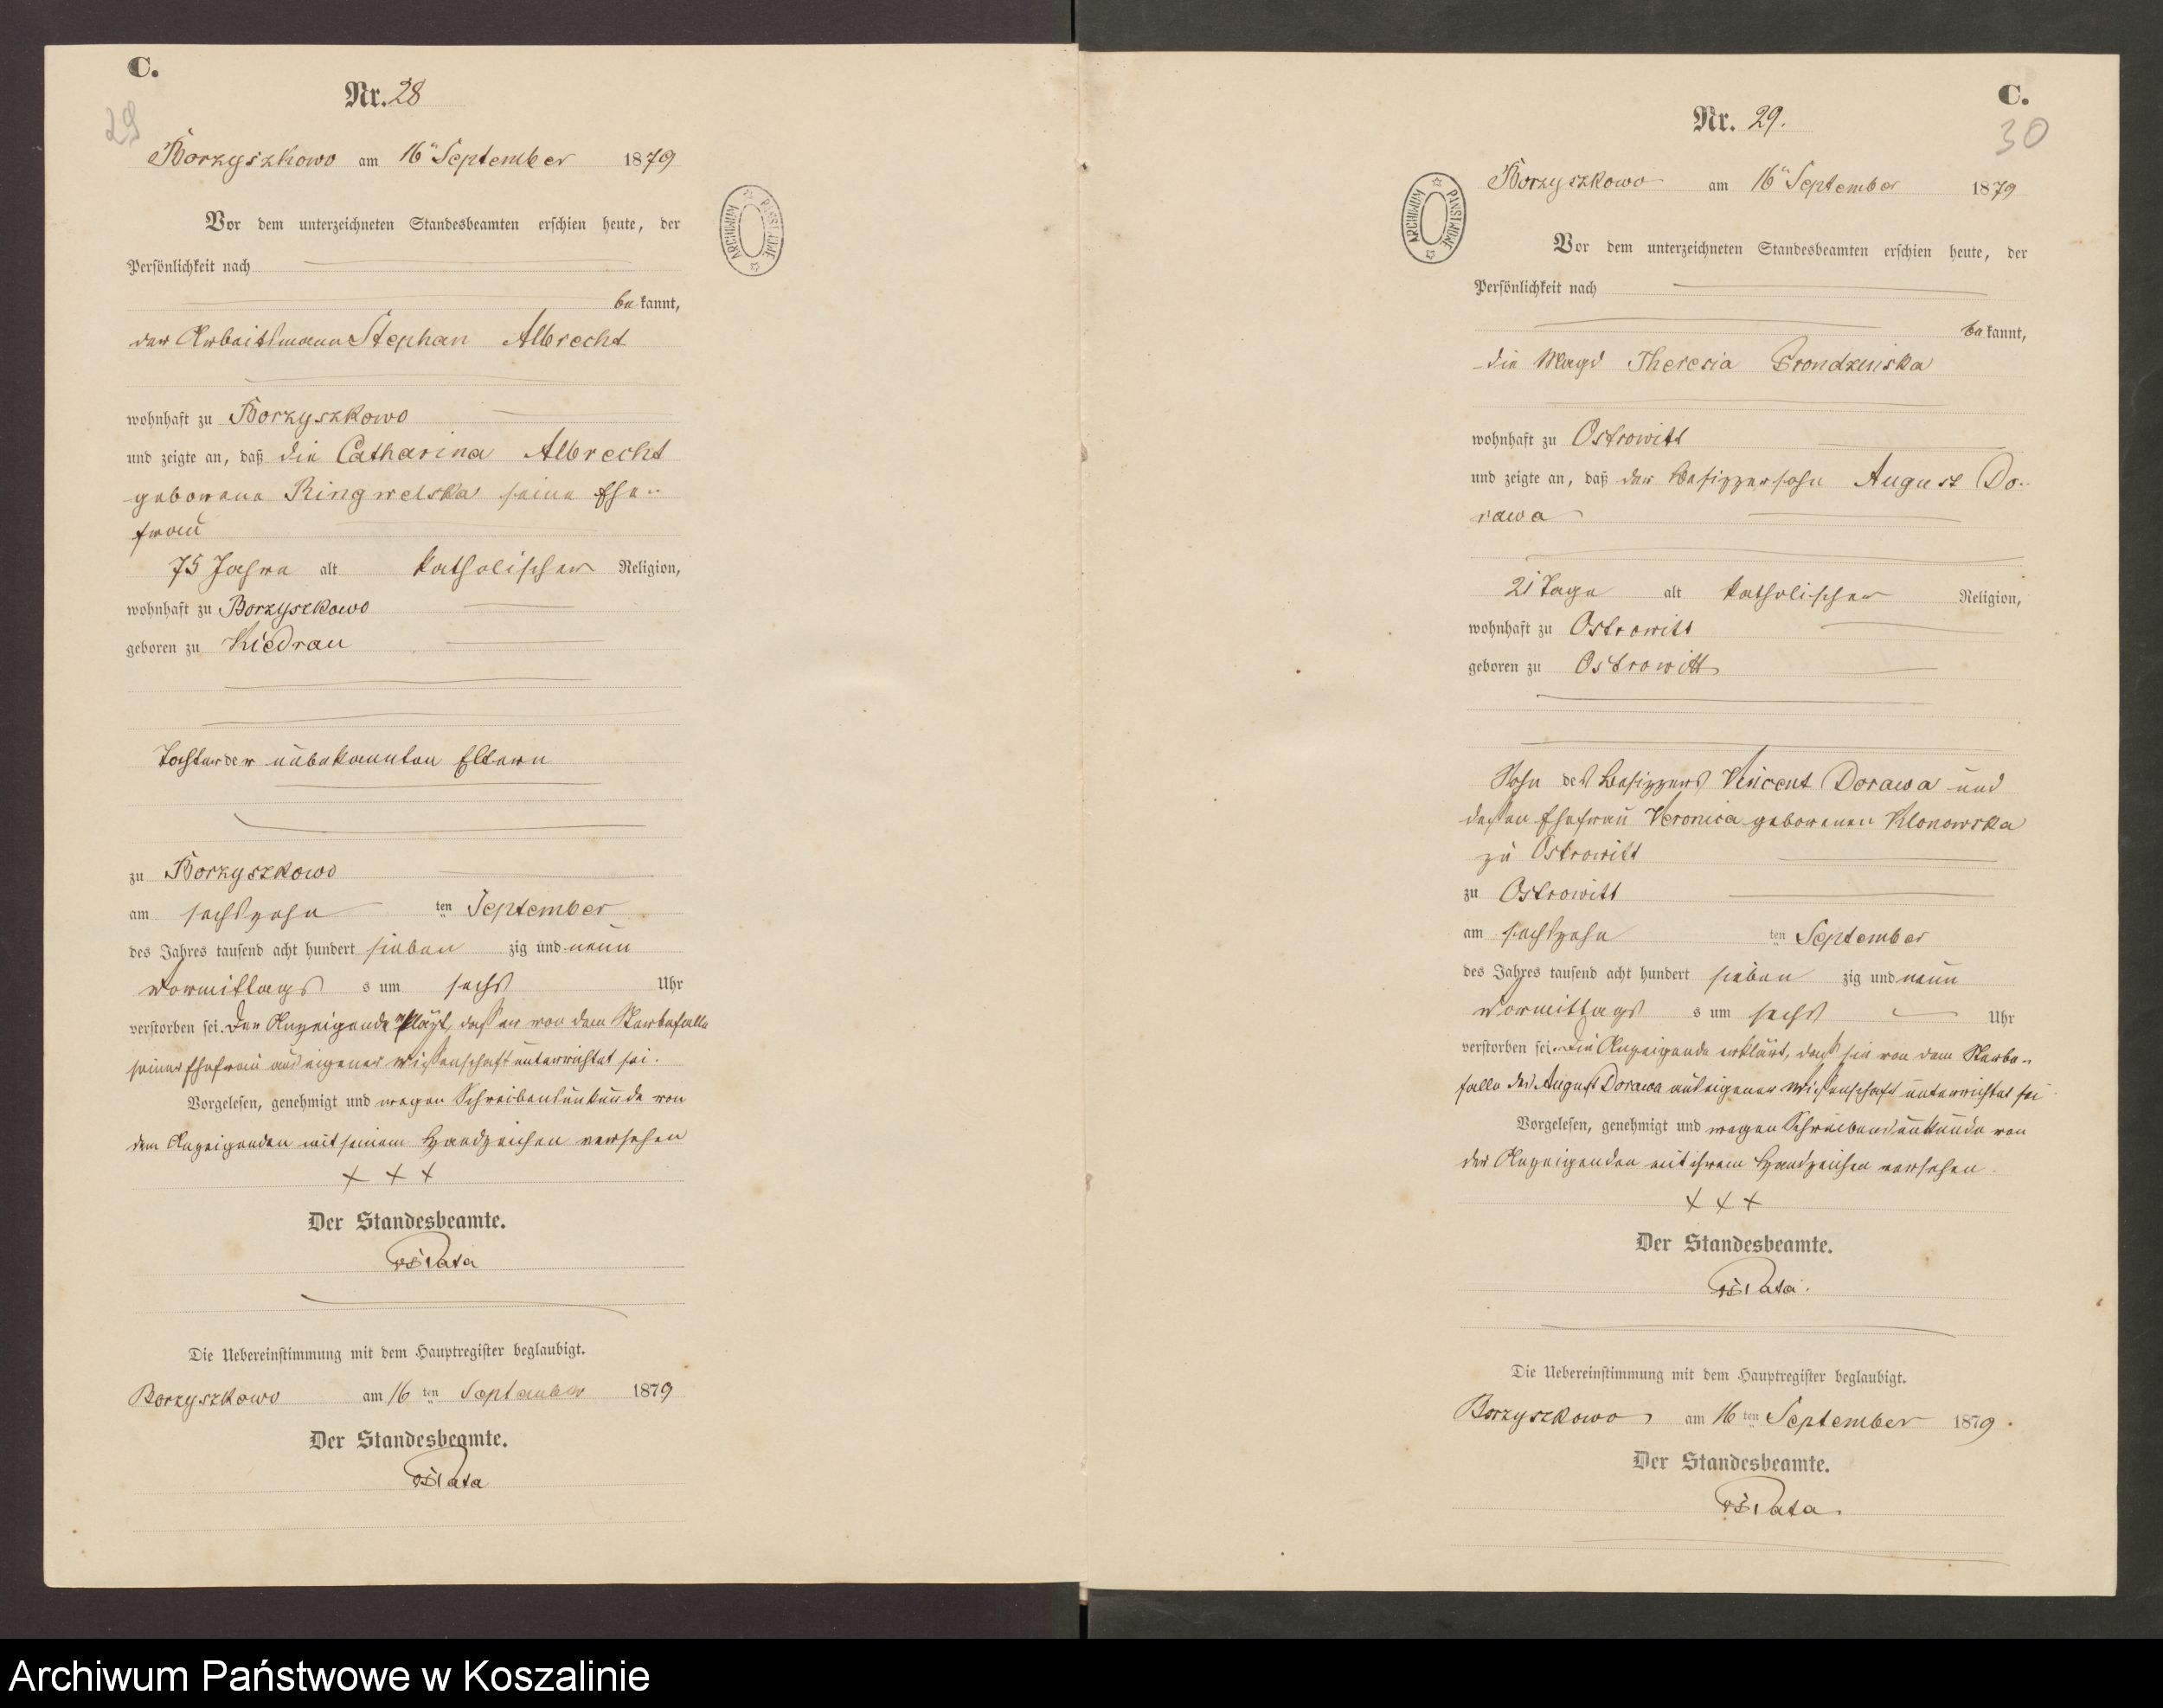 C.
29
Nr. 28
Borzyszkowo am 16ⁿ September 1879
Vor dem unterzeichneten Standesbeamten erschien heute, der
Persönlichkeit nach
be kannt,
der Arbeitsmann Stephan Albrecht
wohnhaft zu Borzyszkowo
und zeigte an, daß die Catharina Albrecht
geborene Ringwelska seine Ehe-
frau
75 Jahre alt katholischer Religion,
wohnhaft zu Borzyszkowo
geboren zu Kiedrau
Tochter der unbekannten Eltern
zu Borzyszkowo
am sechszehn ten September
des Jahres tausend acht hundert sieben zig und neun
Vormittags s um sechs Uhr
verstorben sei. Der Anzeigende erklärt, dass er von dem Sterbefalle
seiner Ehefrau aus eigener Wissenschaft unterrichtet sei.
Vorgelesen, genehmigt und wegen Schreibensunkunde von
dem Anzeigenden mit seinem Handzeichen versehen
+ + +
Der Standesbeamte.
Die Uebereinstimmung mit dem Hauptregister beglaubigt.
Borzyszkowo am 16 ten September 1879
Der Standesbeamte.
ARCHIWUM PAŃSTWOWE
C.
30
Nr. 29.
Borzyszkowo am 16ⁿ September 1879
Vor dem unterzeichneten Standesbeamten erschien heute, der
Persönlichkeit nach
be kannt,
die Magd Theresia Prondzinska
wohnhaft zu Ostrowitt
und zeigte an, daß der Besitzersohn August Do-
rawa
21 Tage alt katholischer Religion,
wohnhaft zu Ostrowitt
geboren zu Ostrowitt
Sohn des Besitzers Vincent Dorawa und
dessen Ehefrau Veronica geborenen Klonowska
zu Ostrowitt
zu Ostrowitt
am sechszehn ten September
des Jahres tausend acht hundert sieben zig und neun
Vormittags s um sechs Uhr
verstorben sei. Die Anzeigende erklärt, dass sie von dem Sterbe-
falle des August Dorawa aus eigener Wissenschaft unterrichtet sei
Vorgelesen, genehmigt und wegen Schreibensunkunde von
der Anzeigenden mit ihrem Handzeichen versehen.
+ + +
Der Standesbeamte.
Die Uebereinstimmung mit dem Hauptregister beglaubigt.
Borzyszkowo am 16 ten September 1879.
Der Standesbeamte.
ARCHIWUM PAŃSTWOWE
Archiwum Państwowe w Koszalinie